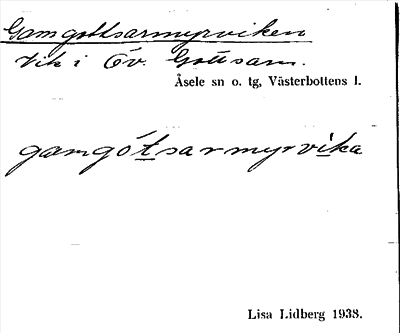 Gamgottsarmyrviken
Vik i Öv. Gottsarn.
Åsele sn o. tg, Västerbottens l.
gamgótsarmyrvika
Lisa Lidberg 1938.